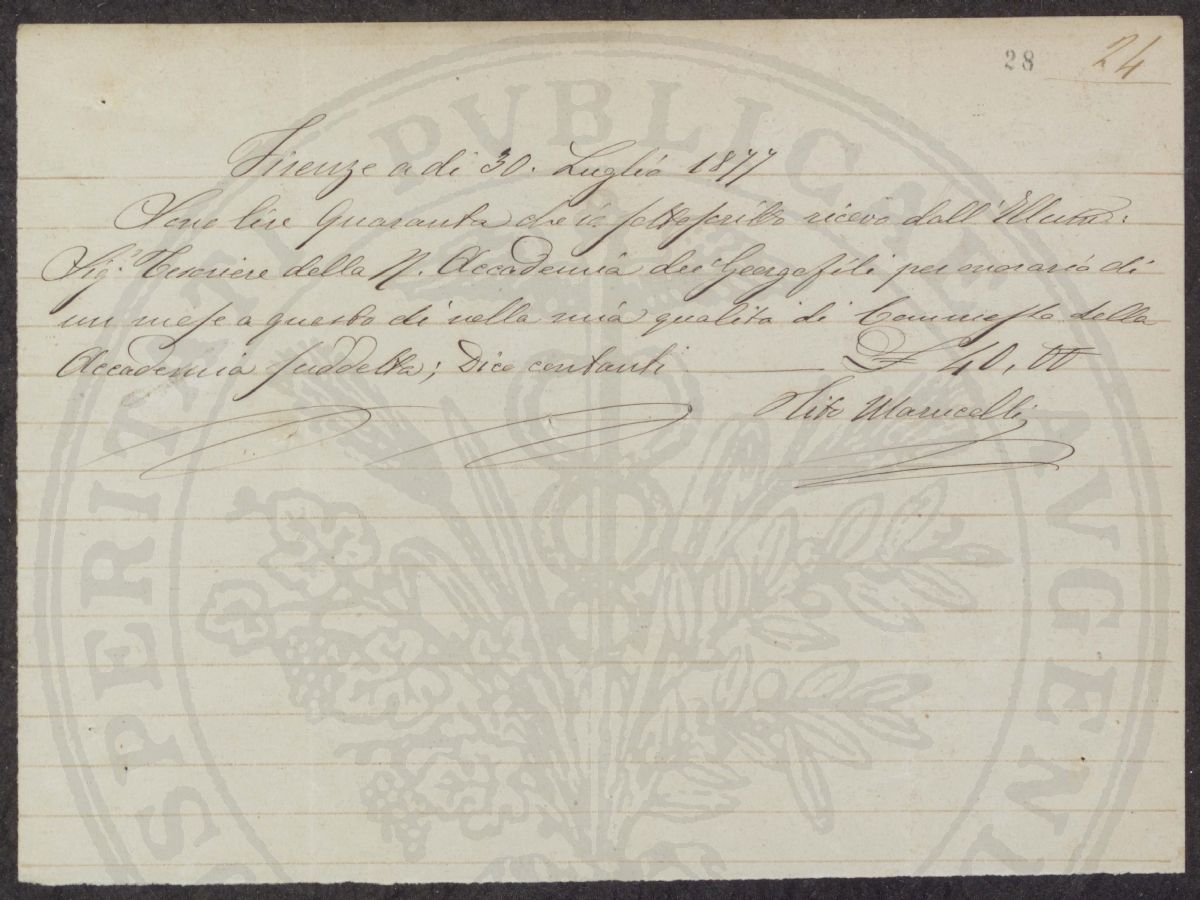 28 24
Firenze a di 30. Luglio 1877
Sono lire Quaranta che io sottoscritto ricevo dall'Illustr:
Sig.r Tesoriere della R. Accademia dei Georgofili per onorario di
un mese a questo di nella mia qualità di Commesso della
Accademia suddetta; Dico contanti £ 40,00
Tito Marucelli
PROSPERITATI PVBLICAE AVGENDAE